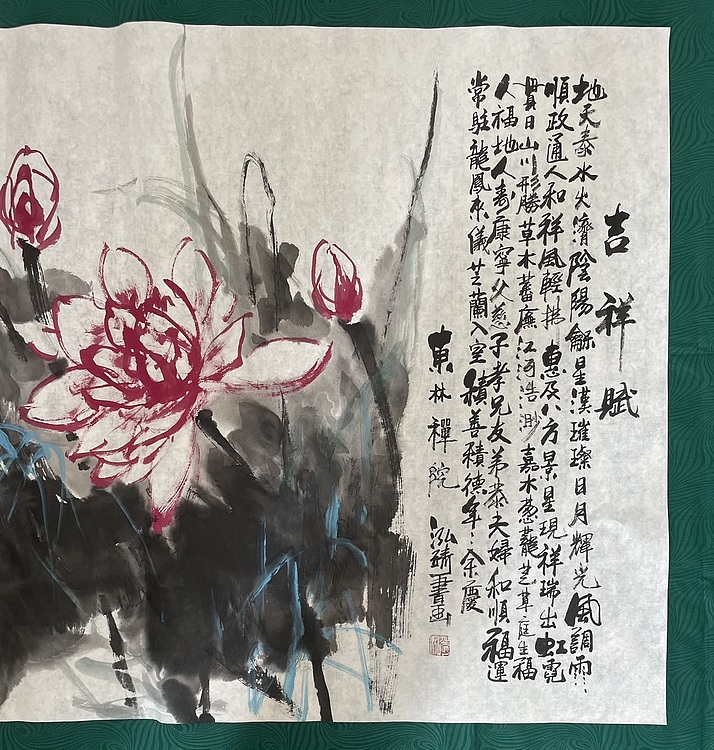 吉祥賦
地天泰水火濟陰陽龢星漢璀璨日月輝光風調雨
順政通人和祥風輕拱惠及八方景星現祥瑞出虹霓
貫日山川形勝草木蕃廡江河浩渺嘉木蔥蘢芝草庭生福
人福地人壽康寧父慈子孝兄友弟恭夫婦和順福運
常駐龍鳳來儀芝蘭入室積善積德年:余慶
東林禪院 泓琦書画